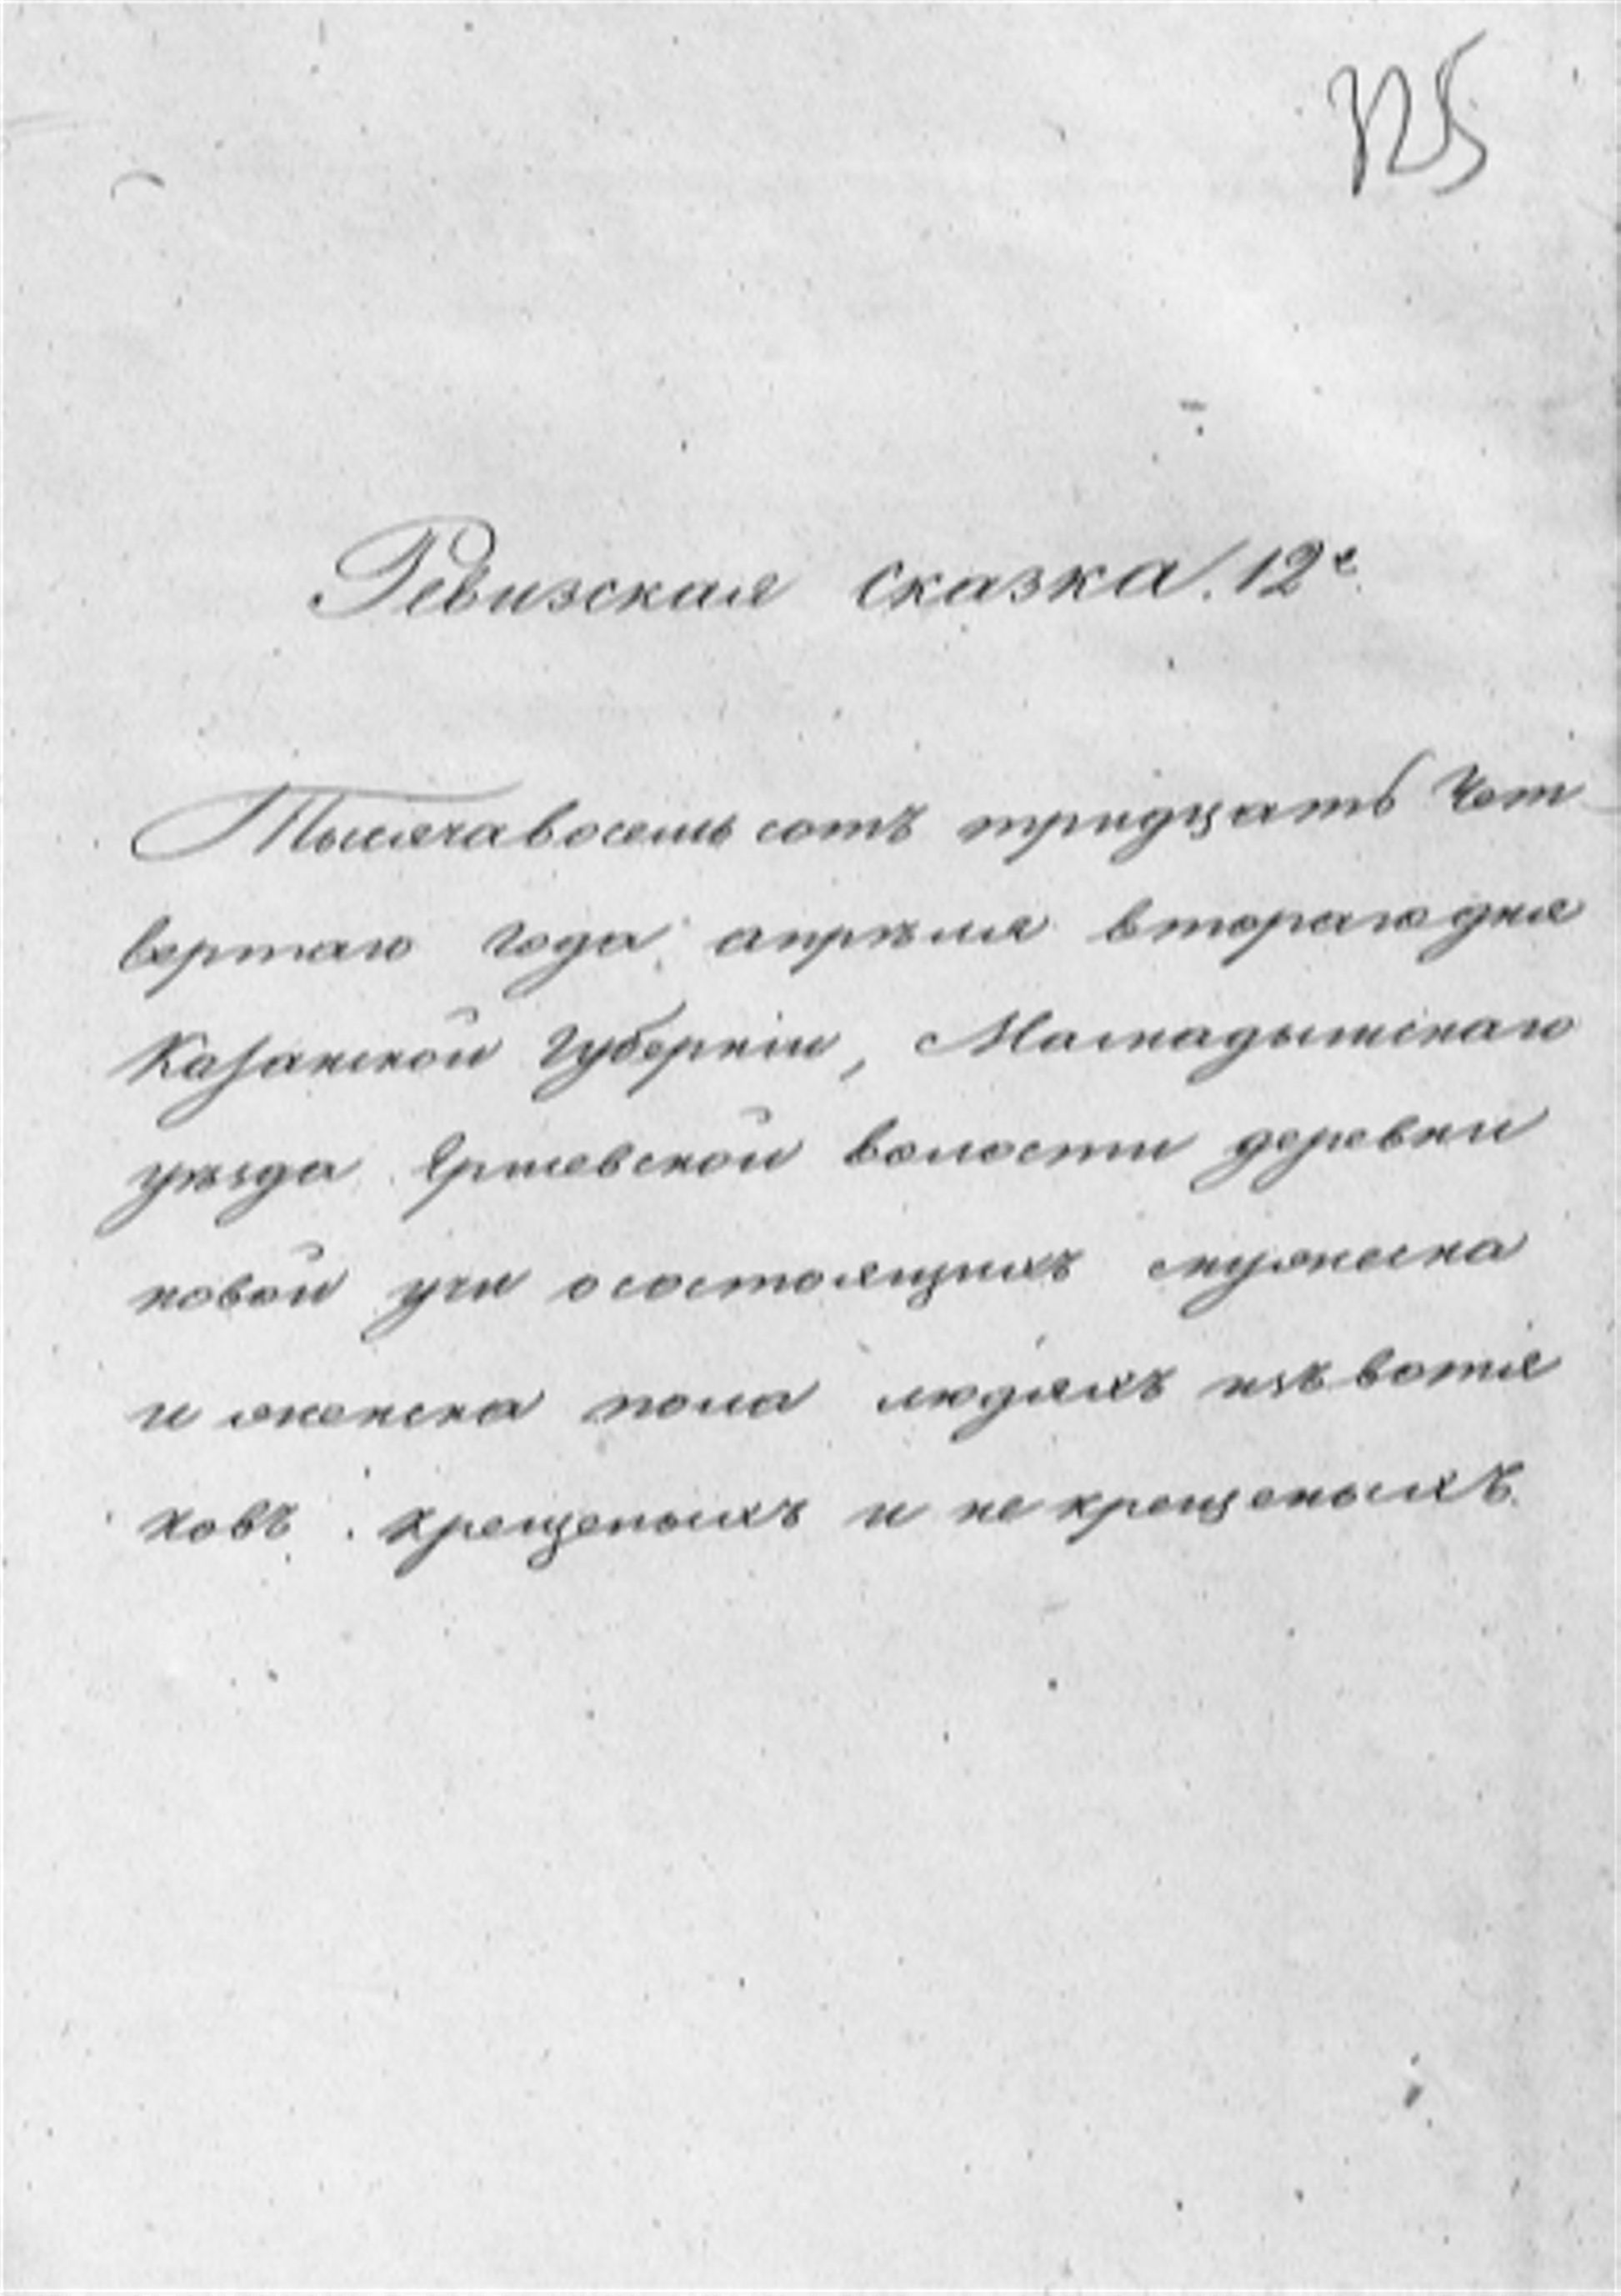 325
Ревизская сказка. 12е
Тысяча восемь сотъ тридцать Чет
вертаго года апрѣля втораго дня
Казанской Губерніи, Мамадышскаго
уѣзда Ершевской волости деревни
новой учи о состоящихъ мужеска
и женска пола людяхъ изъ вотя
ковъ крещеныхъ и не крещеныхъ.